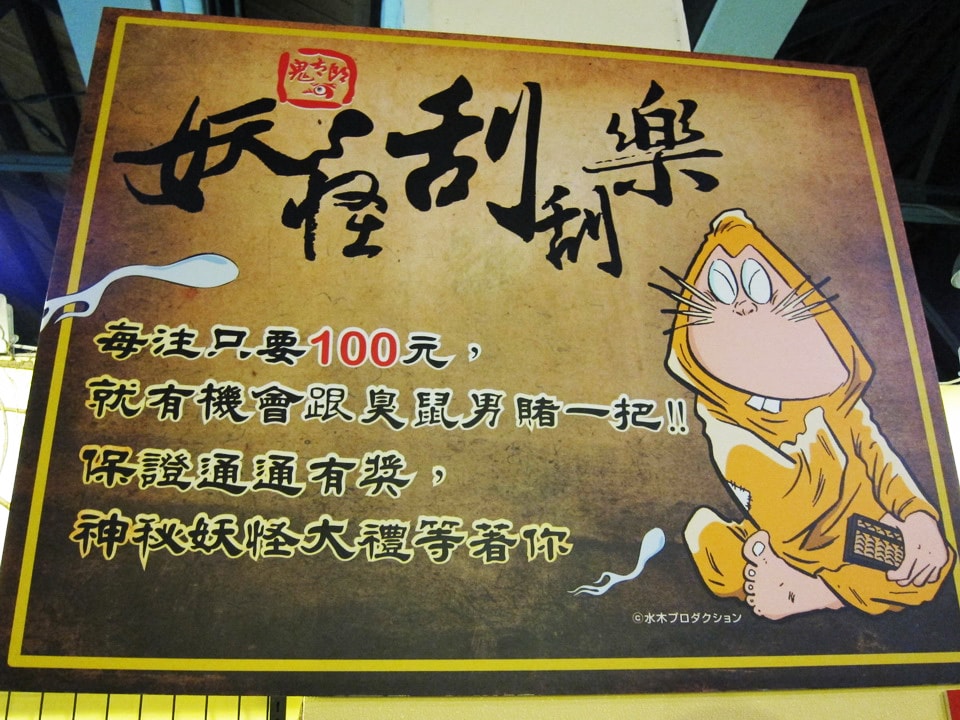 鬼太郎
妖怪刮刮樂
每注只要100元，
就有機會跟臭鼠男賭一把!!
保證通通有獎，
神秘妖怪大禮等著你
©水木プロダクション